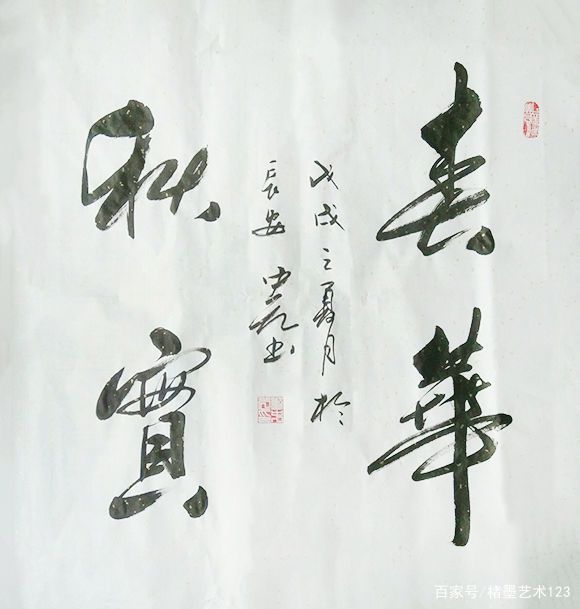 春華
秋實
戊戌之夏月於
長安
書
百家号/楮墨艺术123